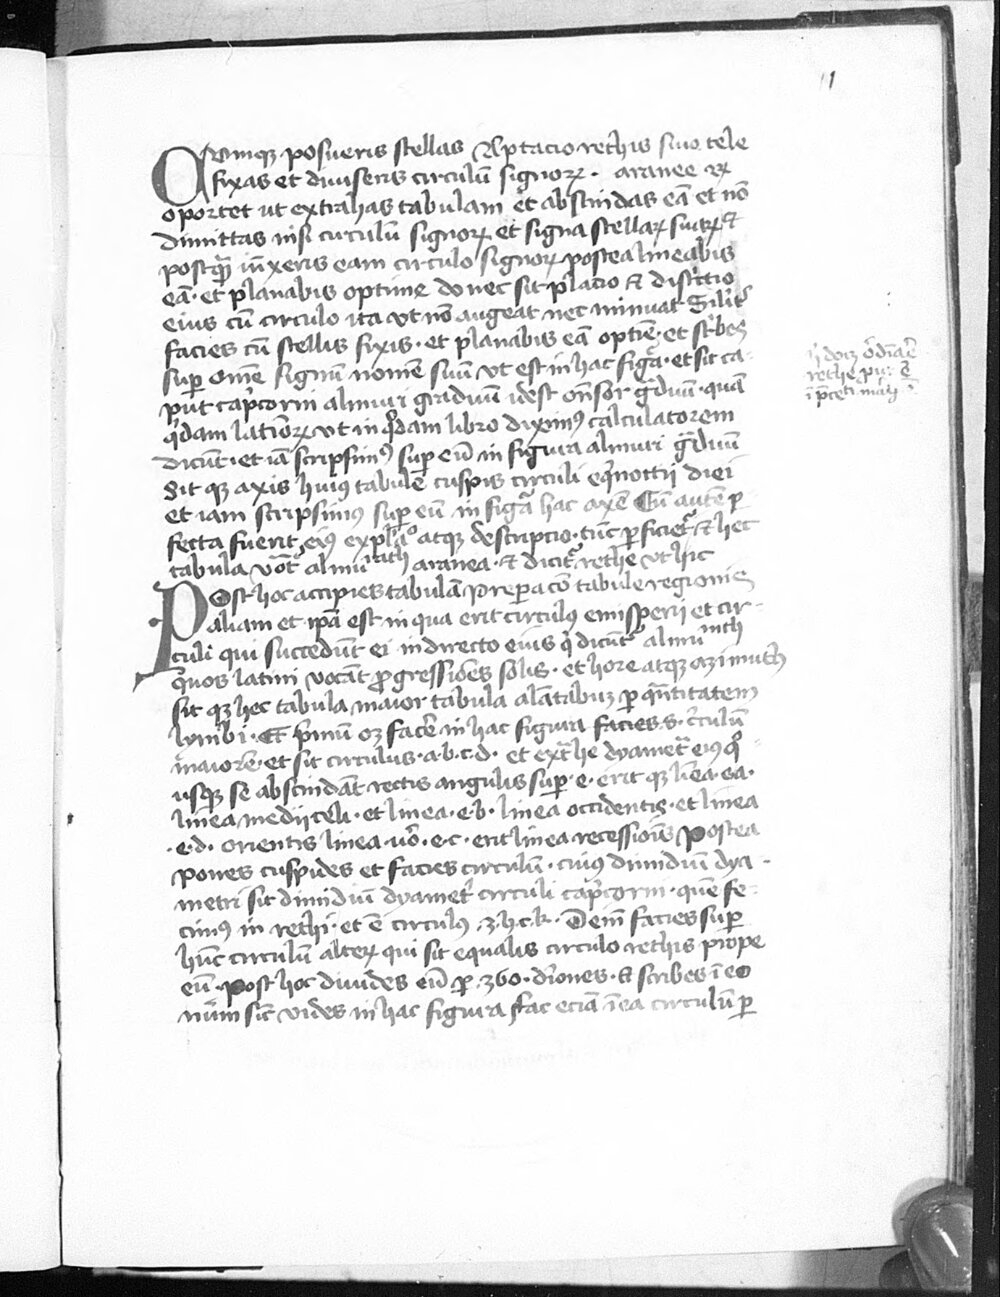 11
Qumqꝫ posueris stellas Aptacio rethis siuo tele
fixas et diuiseris circulū signoꝝ · aranee
oportet ut extrahas tabulam et abscindas eā et nō
dimittas nisi circulū signoꝝ et signa stellaꝝ suaꝝ et
postqꝫ īnxeris eam circulo signoꝝ postea lineabis
eā · et planabis optime donec sit placio et
eius cū circulo ita vt nō augeat nec minuat Silit̄
facies cū stellis fixis · et planabis eā optīe · et sc'bes
suꝑ om̄e signū nomē suū vt est in hac figᵃ · et sit ca-
put cap'corni almuri graduū idest on̄sor gᵃduū · quā
q'dam latinoꝝ vt in q°dam libro diximꝰ calculatorem
dicūt · et iā scripsimꝰ suꝑ eū in figura almuri gᵃduū
Sit qꝫ axis huiꝰ tabule cuspis circuli eq'noctij diei
et iam scripsimꝰ suꝑ eū in figᵃ hac axē Cū autē ꝑ
fecta fuerit eiꝰ atqꝫ descriptio · tūc ꝑficiet̄ et hec
tabula aranea · et dicit̄ rethe vt hic
Post hoc accipies tabulā Preparaco tabule regionis
aliam et ipā est in qua erit circulꝰ emisperij et cir-
culi qui succedūt ei in directo eiꝰ q' dicūt̄ almucanth
quos latini vocāt ꝓgressiōes solis · et hore atqꝫ azimuth
sit qꝫ hec tabula maior tabula alātabuꝫ ꝑ qᵃntitatem
lymbi · Et p'mū oꝫ facere in hac figura facies · s · c'culū
maiorē · et sit circulus · a · b · c · d · et extᵃhe dyamet̄ eiꝰ q°
usqꝫ se abscindāt rectis angulis suꝑ · e · erit qꝫ linea · ea ·
linea medij celi · et linea · e · b · linea occidentis · et linea
· e · d · orientis linea · uō · e · c · erit linea recessiōis Postea
pones cuspides et facies circulū · cuiꝰ dimidiū dya-
metri sit dimidiū dyamet' circuli cap'corni · quē fe-
cimꝰ in rethi · et ē circulꝰ · z · h · c · k · Deīn facies suꝑ
hūc circulū alteꝝ qui sit equalis circulo rethis prope
eū · Post hoc diuides eū ꝑ · 360 · d'iones · et scribes ī eo
nūm sic vides in hac figura fac eciā ī ea circulū ꝑ